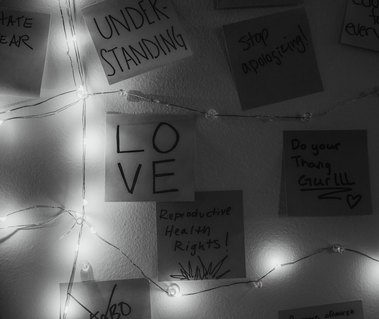 HATE
EAR
UNDER-
STANDING
Stop
apologizing!
LO
VE
Do your
Thang
Gurlll
Reproductive
Health
Rights!